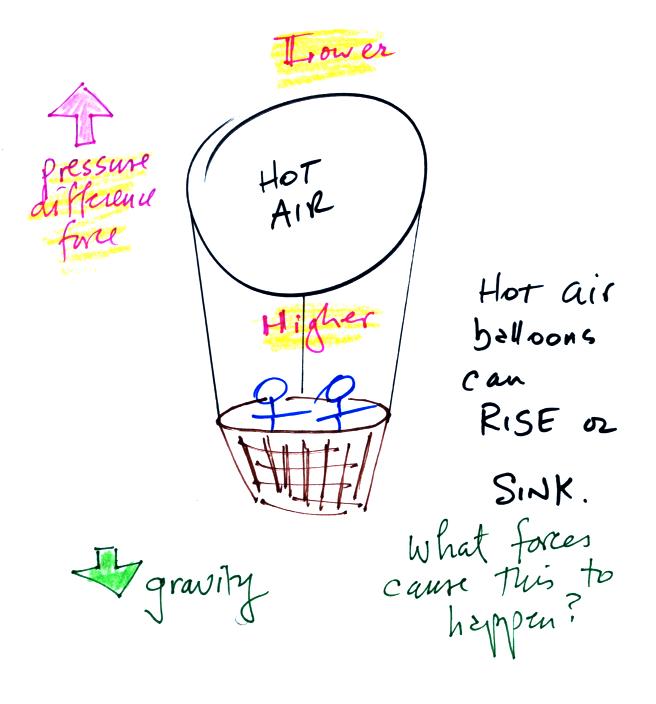 Lower
Pressure
difference
force
HOT
AIR
Higher
Hot air
balloons
can
RISE or
SINK.
What forces
cause this to
happen?
gravity